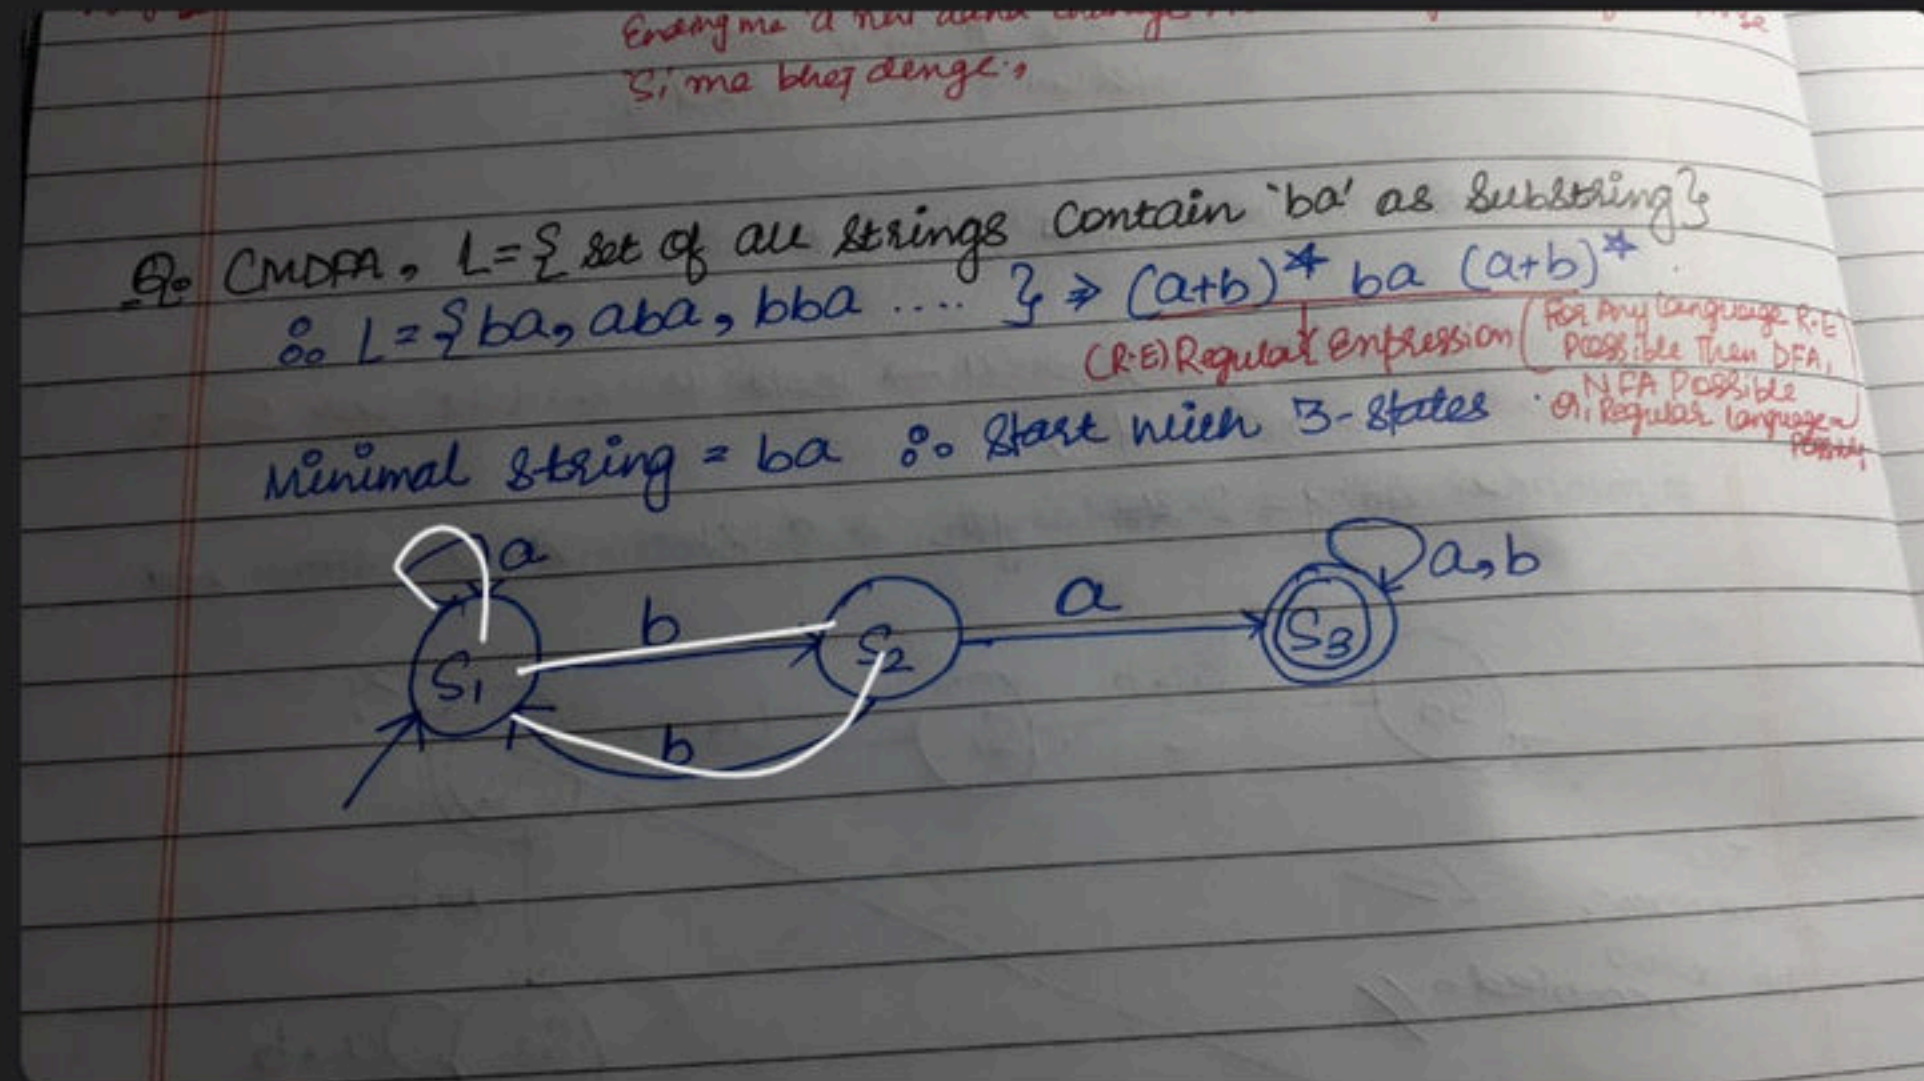 Ending me a
S1 me bhej denge.,
Q. CMDFA, L={ set of all strings contain 'ba' as substring}
∴ L={ba, aba, bba .... } ⇒ (a+b)* ba (a+b)*
(R.E) Regular Enpression (For Any language R.E
Possible Then DFA,
NFA Possible
Or, Regular language
Possible)
Minimal string = ba ∴ Start with 3-states
a
a,b
b
a
S1
S2
S3
b